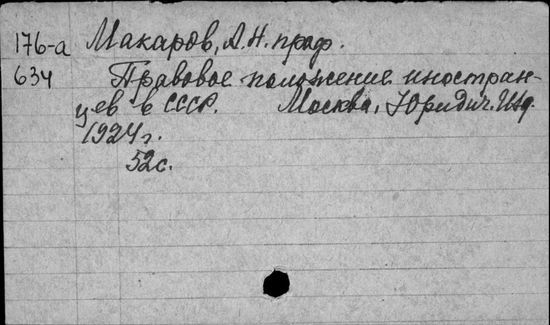 176-а Макаров, А.Н. проф.
634 Правовое положение иностран-
цев в СССР. Москва, Юридич. Изд.
1924 г.
52 с.